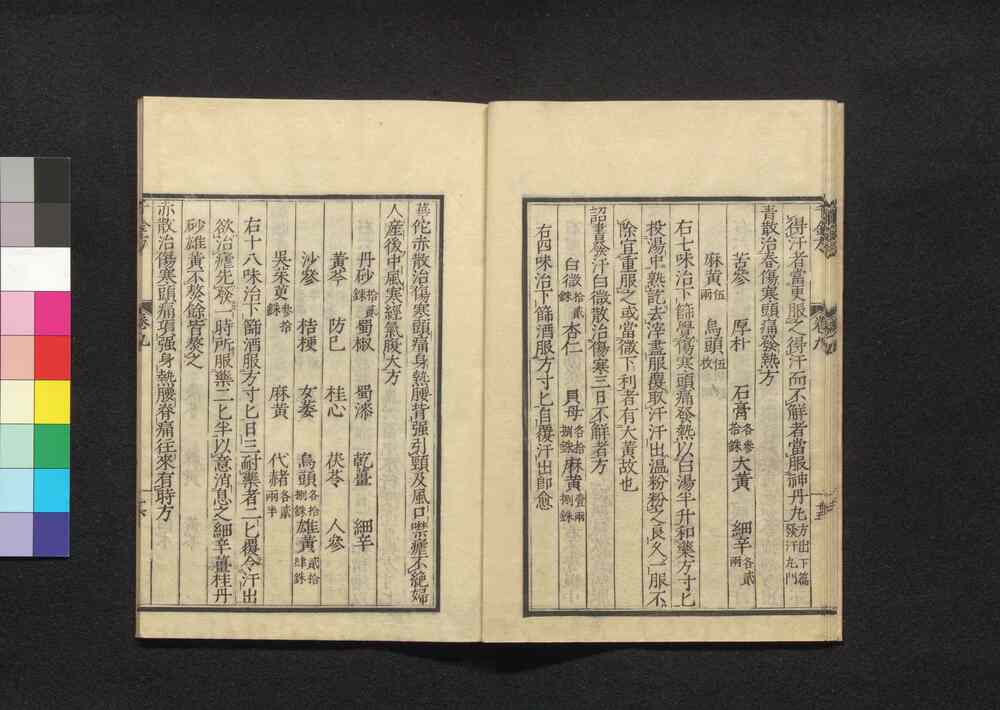 得汗者當更服之得汗而不解者當服神丹丸方出下篇發汗丸門
青散治春傷寒頭痛發熱方
苦參 厚朴 石膏各参拾銖 大黃 細辛各貳兩
麻黃伍兩 烏頭伍枚
右七味治下篩覺傷寒頭痛發熱以白湯半升和藥方寸匕
投湯中熟訖去滓盡服覆取汗汗出溫粉粉之良久一服不
除宜重服之或當微下利者有大黃故也
詔書發汗白薇散治傷寒三日不解者方
白薇拾貳銖 杏仁 貝母各拾捌銖 麻黃壹兩捌銖
右四味治下篩酒服方寸匕自覆汗出卽愈
華佗赤散治傷寒頭痛身熱腰背强引頸及風口噤瘧不絶婦
人産後中風寒經氣腹大方
丹砂拾貳銖 蜀椒 蜀漆 乾薑 細辛
黃芩 防已 桂心 茯苓 人參
沙參 桔梗 女萎 烏頭各拾捌銖 雄黃貳拾肆銖
吳茱萸参拾銖 麻黃 代赭各貳兩半
右十八味治下篩酒服方寸匕日三耐藥者二匕覆令汗出
欲治瘧先發一時所服藥二匕半以意消息之細辛薑桂丹
砂雄黃不熬餘皆熬之
赤散治傷寒頭痛項强身熱腰脊痛往來有時方
卷九